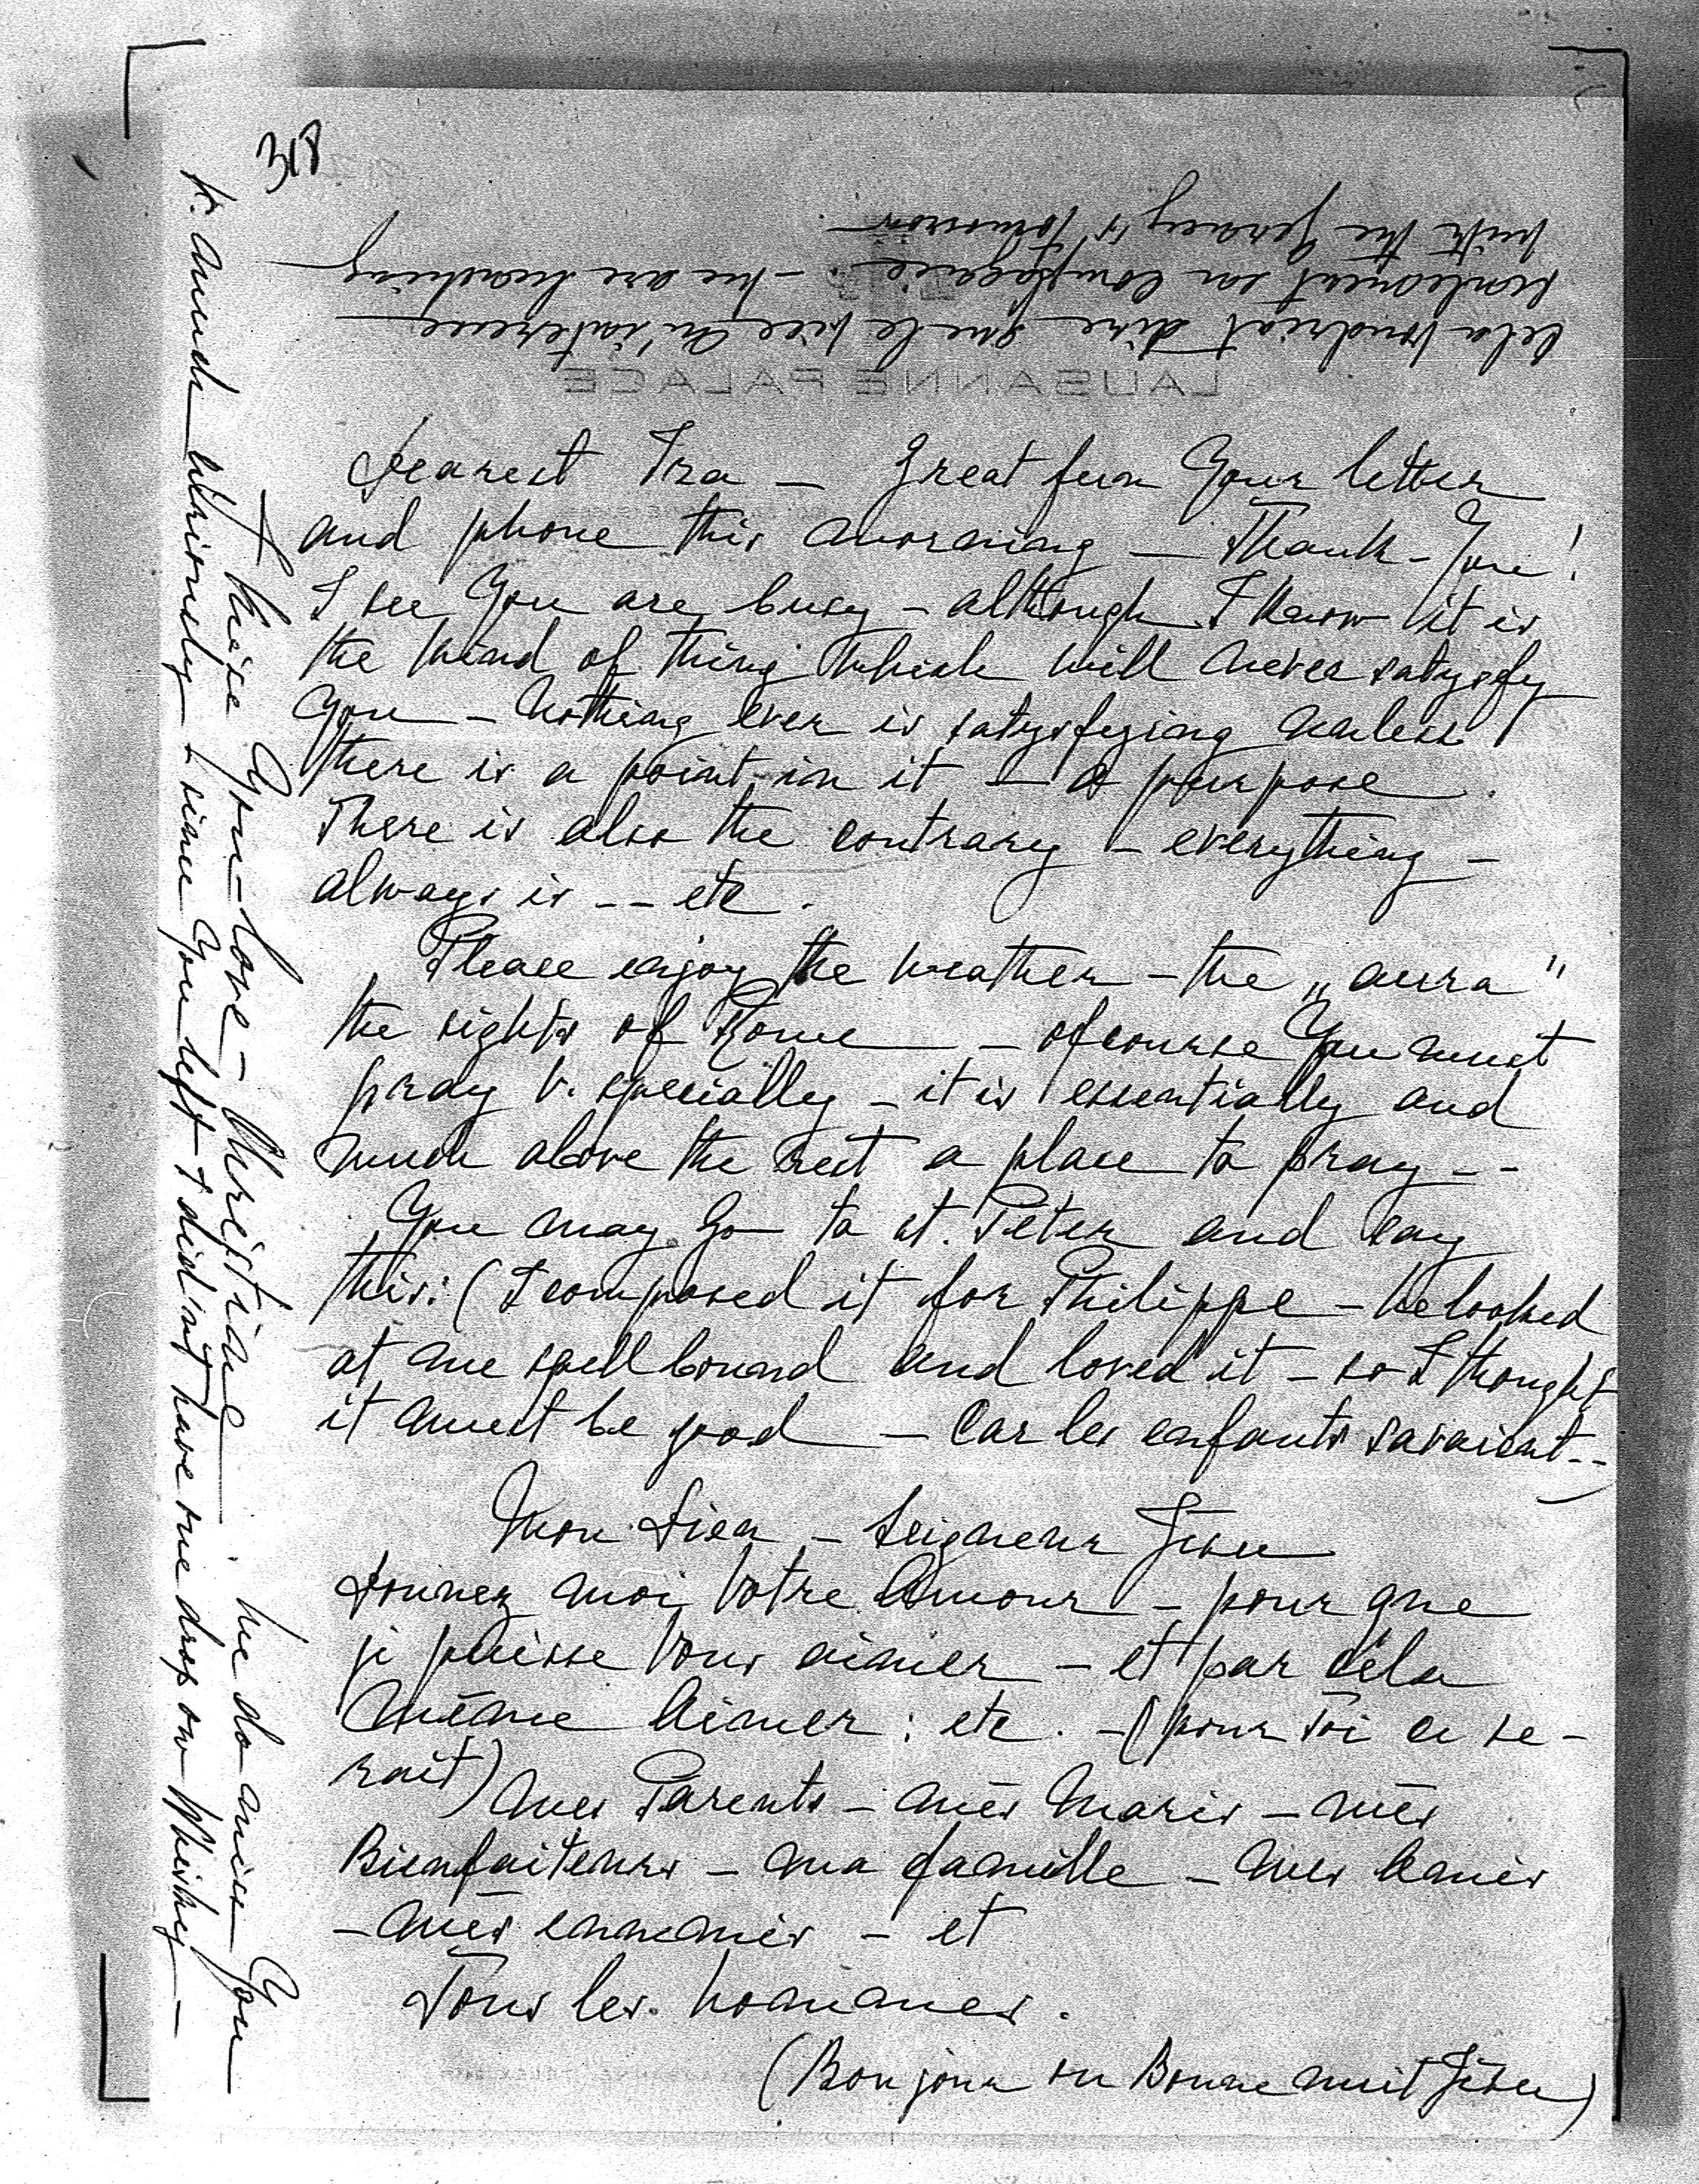 318
Dearest Ira – Great fun Your letter
and phone this morning – Thank-You!
I see You are busy – although I know it is
the kind of thing which will never satysfy
You – Nothing ever is satysfying unless
there is a point in it – a purpose.
There is also the contrary – everything –
always is -- etc.
Please enjoy the weather – the „aura"
the sights of Rome – ofcourse You must
pray v. specially – it is essentially and
much above the rest a place to pray --
You may go to st. Peter and say
this: (I composed it for Philippe – he looked
at me spell bound and loved it – so I thought
it must be good – Car les enfants savaient --)
Mon Dieu – Seigneur Jésu
donnez moi Votre Amour – pour que
je puisse Vous aimer – et par cela
même Aimer : etc. – (pour Toi ce se-
rait) Mes Parents – mes Maris – mes
Bienfaiteurs – ma famille – mes Amis
– mes ennemis – et
Tous les hommes.
(Bonjour ou Bonne nuit Jésu)
I kiss You – love – Christiane. We do miss You
v. much – Curiously – since You left I did'nt have one drop ov Whisky –
Cela voudrait dire que le vice m'interesse
seulement en Compagnie. – We are
with the tomorrow
LAUSANNE PALACE